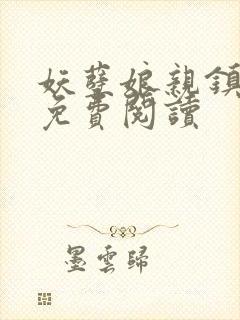 妖孽娘親鎮
免費閱讀
墨雲歸